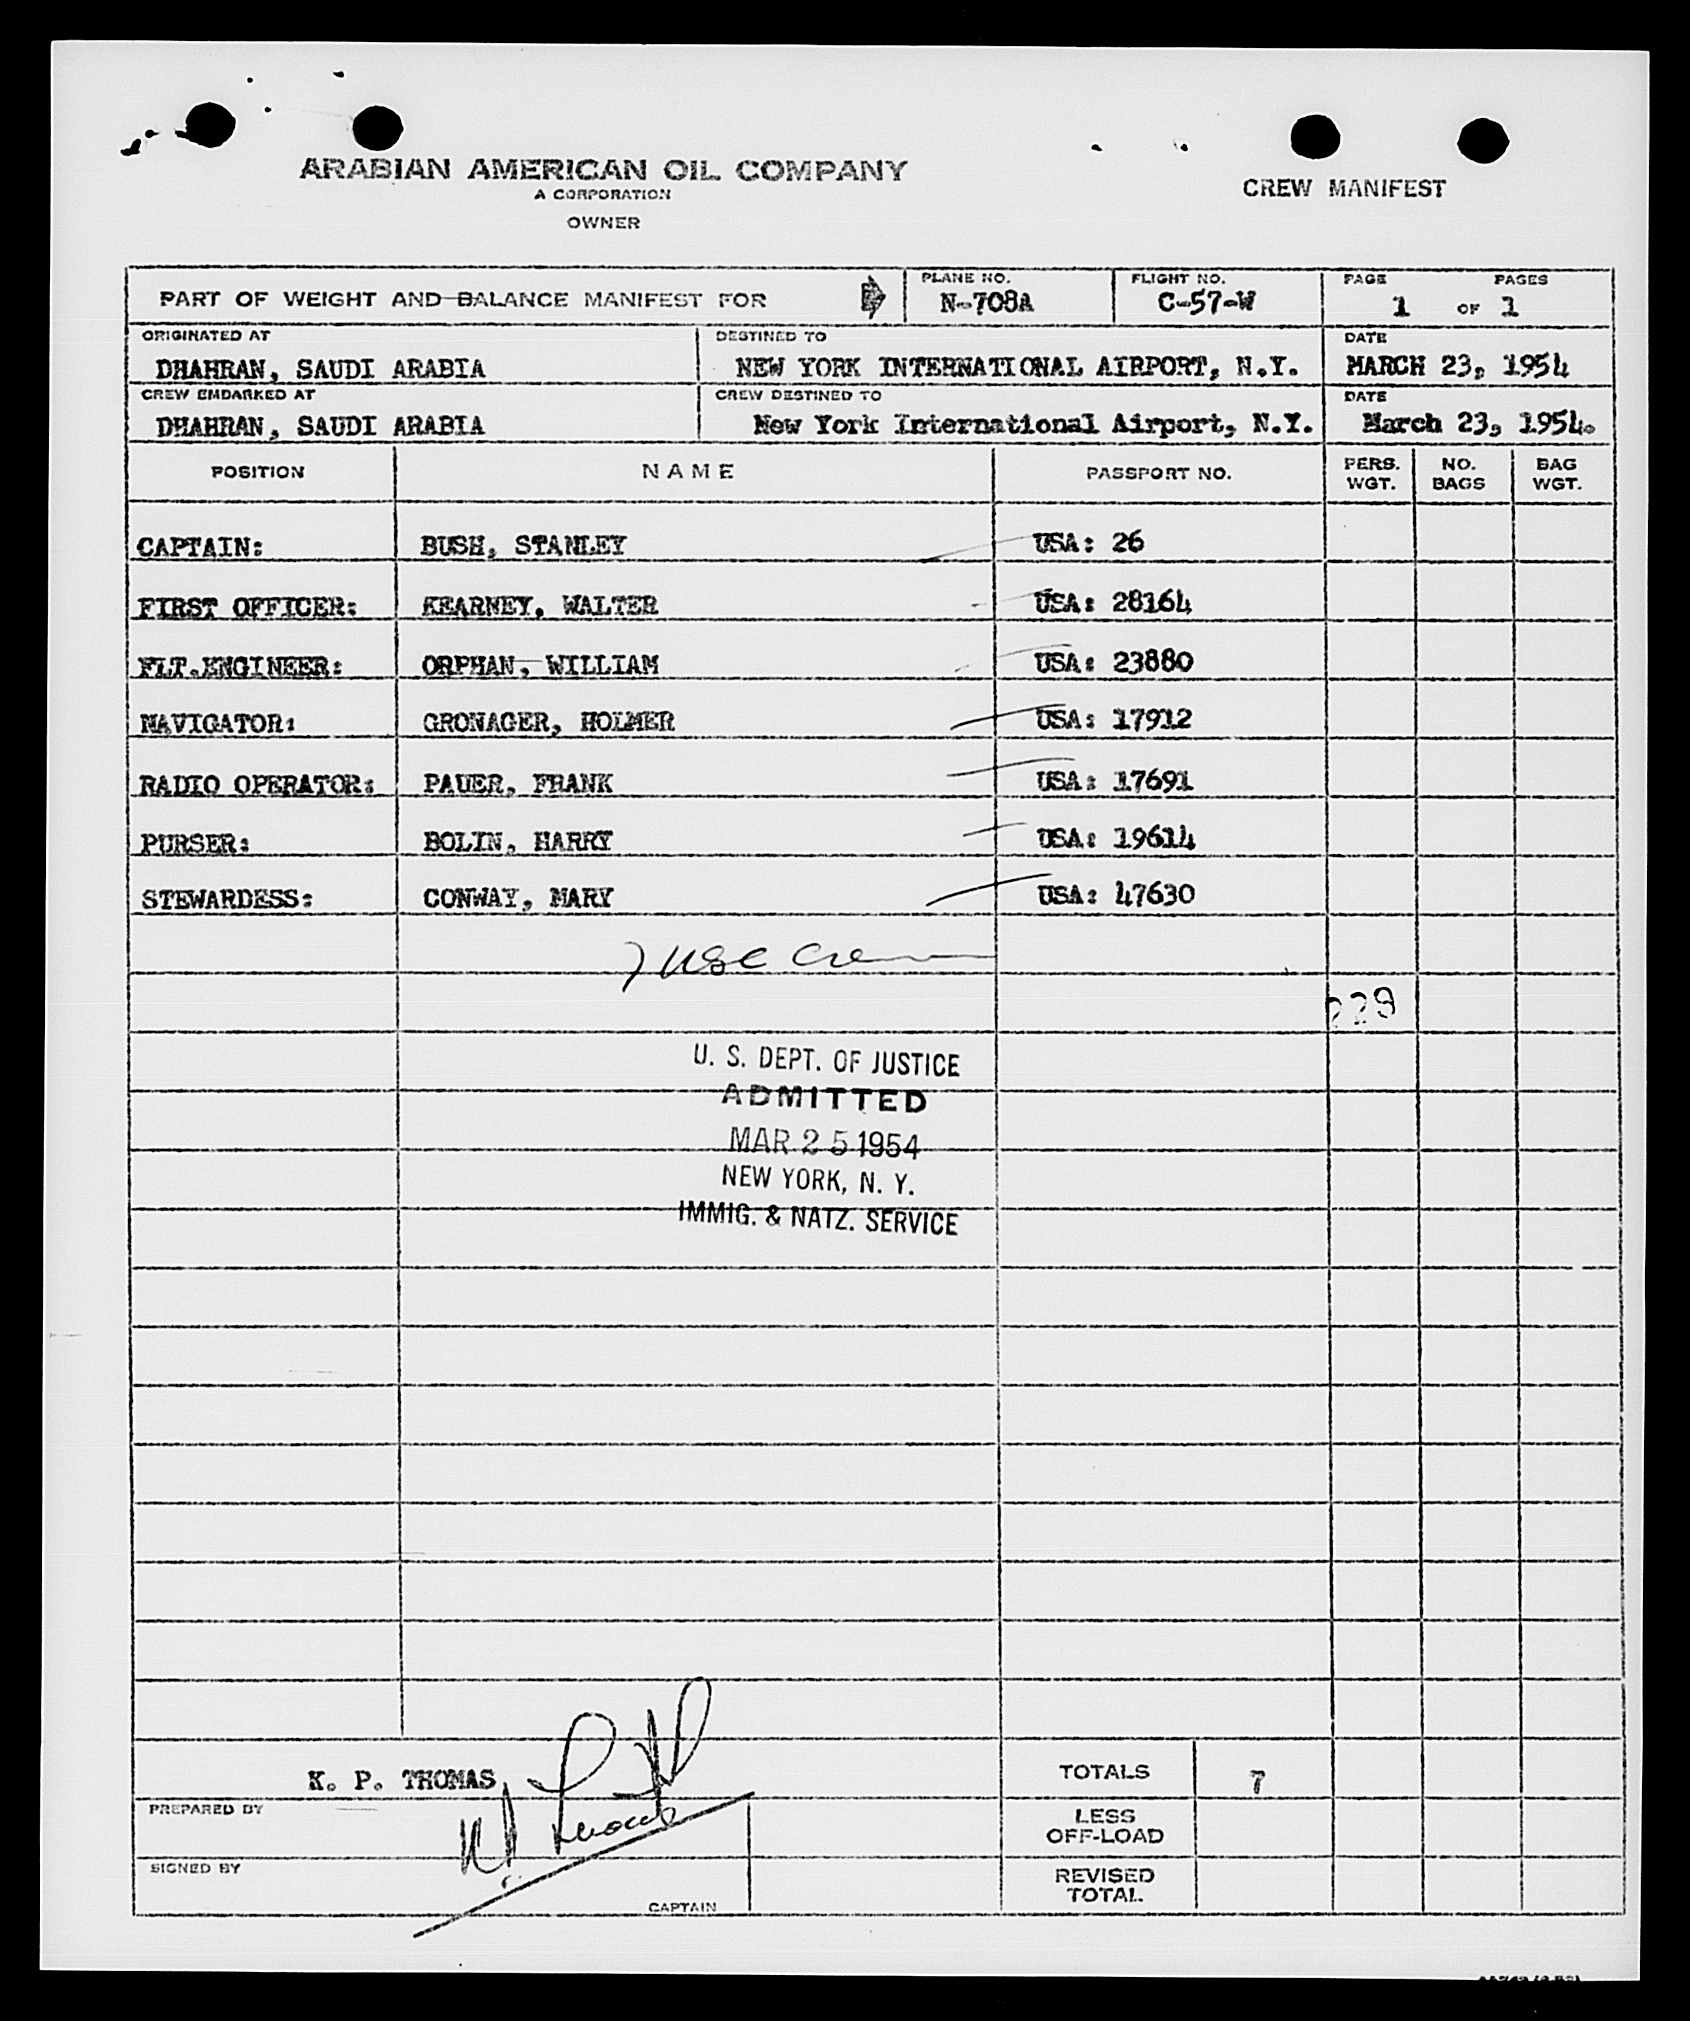 ARABIAN AMERICAN OIL COMPANY
A CORPORATION
OWNER
CREW MANIFEST
PART OF WEIGHT AND BALANCE MANIFEST FOR
PLANE NO.
N-708A
FLIGHT NO.
C-57-W
PAGE PAGES
1 OF 1
ORIGINATED AT
DHAHRAN, SAUDI ARABIA
DESTINED TO
NEW YORK INTERNATIONAL AIRPORT, N.Y.
DATE
MARCH 23, 1954
CREW EMBARKED AT
DHAHRAN, SAUDI ARABIA
CREW DESTINED TO
New York International Airport, N.Y.
DATE
March 23, 1954.
POSITION NAME PASSPORT NO. PERS. WGT. NO. BAGS BAG WGT.
CAPTAIN: BUSH, STANLEY USA: 26
FIRST OFFICER: KEARNEY, WALTER USA: 28164
FLT.ENGINEER: ORPHAN, WILLIAM USA: 23880
NAVIGATOR: GRONAGER, HOLMER USA: 17912
RADIO OPERATOR: PAUER, FRANK USA: 17691
PURSER: BOLIN, HARRY USA: 19614
STEWARDESS: CONWAY, MARY USA: 47630
7 USC Crew
229
U. S. DEPT. OF JUSTICE
ADMITTED
MAR 25 1954
NEW YORK, N. Y.
IMMIG. & NATZ. SERVICE
K. P. THOMAS
PREPARED BY
SIGNED BY
CAPTAIN
TOTALS 7
LESS
OFF-LOAD
REVISED
TOTAL